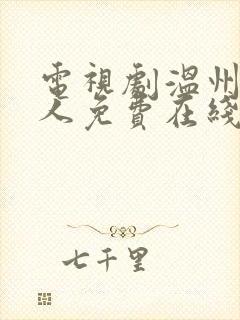 電視劇溫州
人免費在綫
七千里